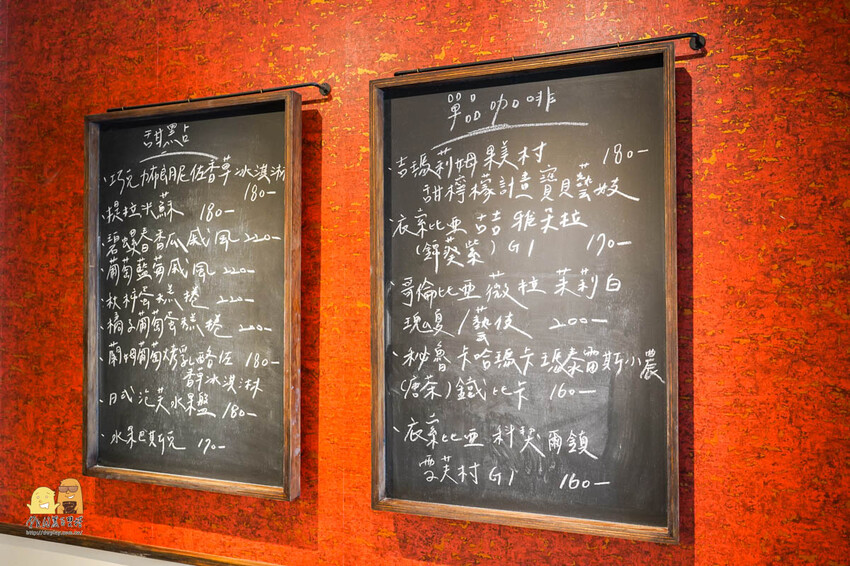 甜點
· 巧克力布朗尼佐香草冰淇淋
180-
· 提拉米蘇 180-
· 碧螺春香瓜戚風 220-
· 葡萄藍莓戚風 220-
· 秋柿蛋糕捲 220-
· 橘子葡萄蛋糕捲 200-
· 蘭姆葡萄烤乳酪佐 180-
香草冰淇淋
· 日式泡芙水果盤
180-
· 水果巴斯克 170-
單品咖啡
· 吉瑪莉姆果美村 180-
甜檸檬計畫寶貝藝妓
· 衣索比亞 古吉 雅芙拉
(錦葵紫) G1 170-
· 哥倫比亞 薇拉 茉莉白
瑰夏/藝伎 200-
· 秘魯卡哈瑪卡瑪泰雷斯小農
(唐茶) 鐵比卡 160-
· 衣索比亞 科契爾鎮
雯芙村 G1 160-